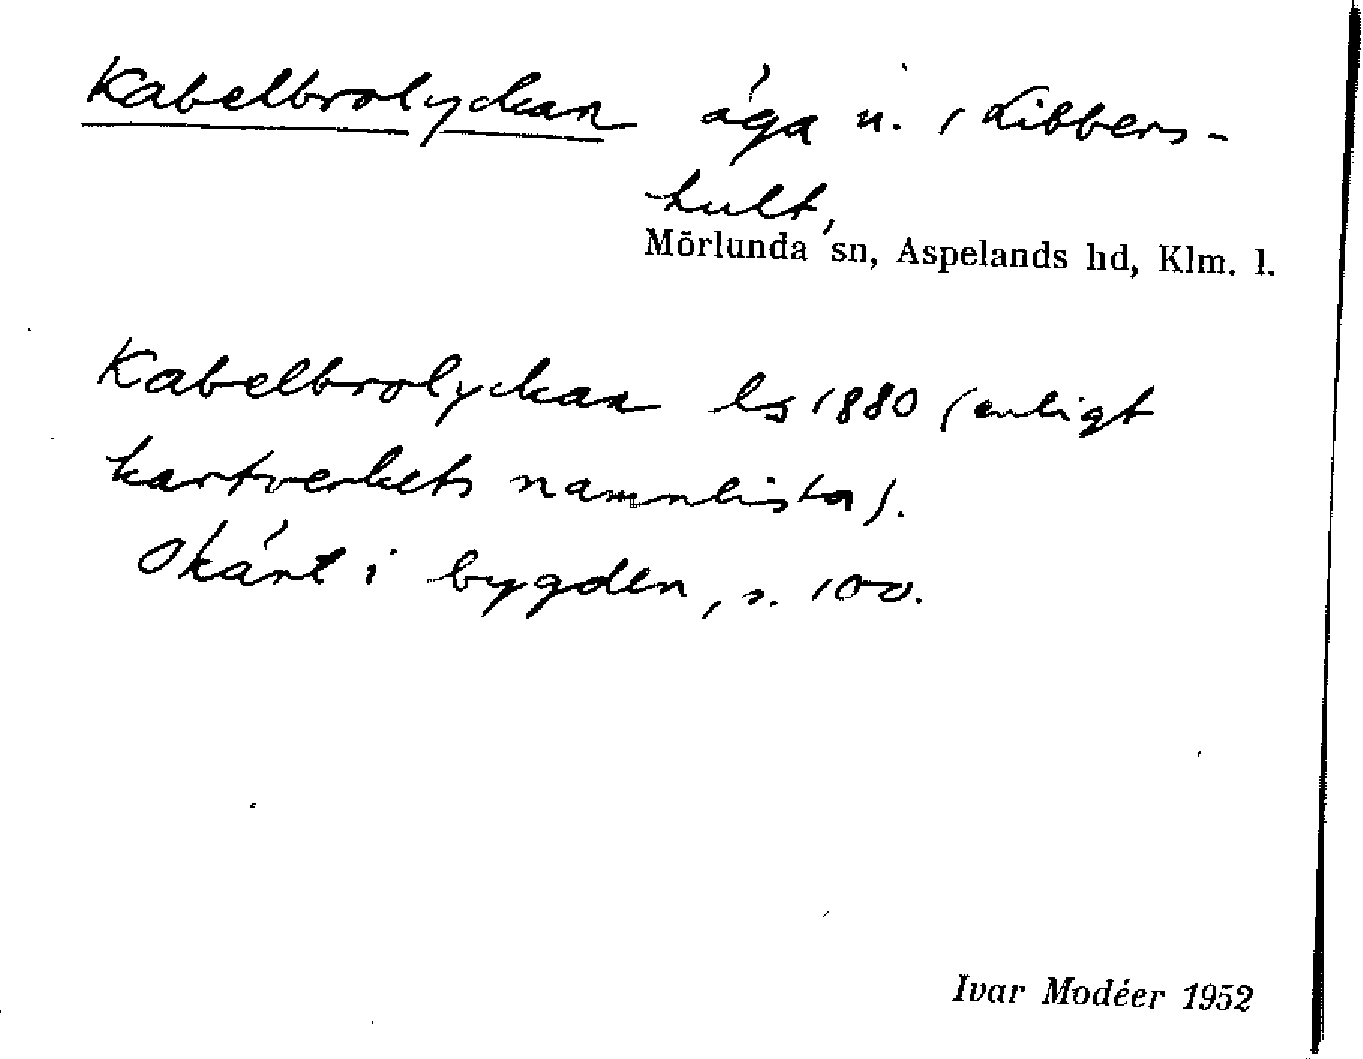 Kabelbrolyckan äga n. i Libbers-
hult,
Mörlunda sn, Aspelands hd, Klm. l.
Kabelbrolyckan ls 1880 (enligt
kartverkets namnlista).
Okänt i bygden, s. 100.
Ivar Modéer 1952